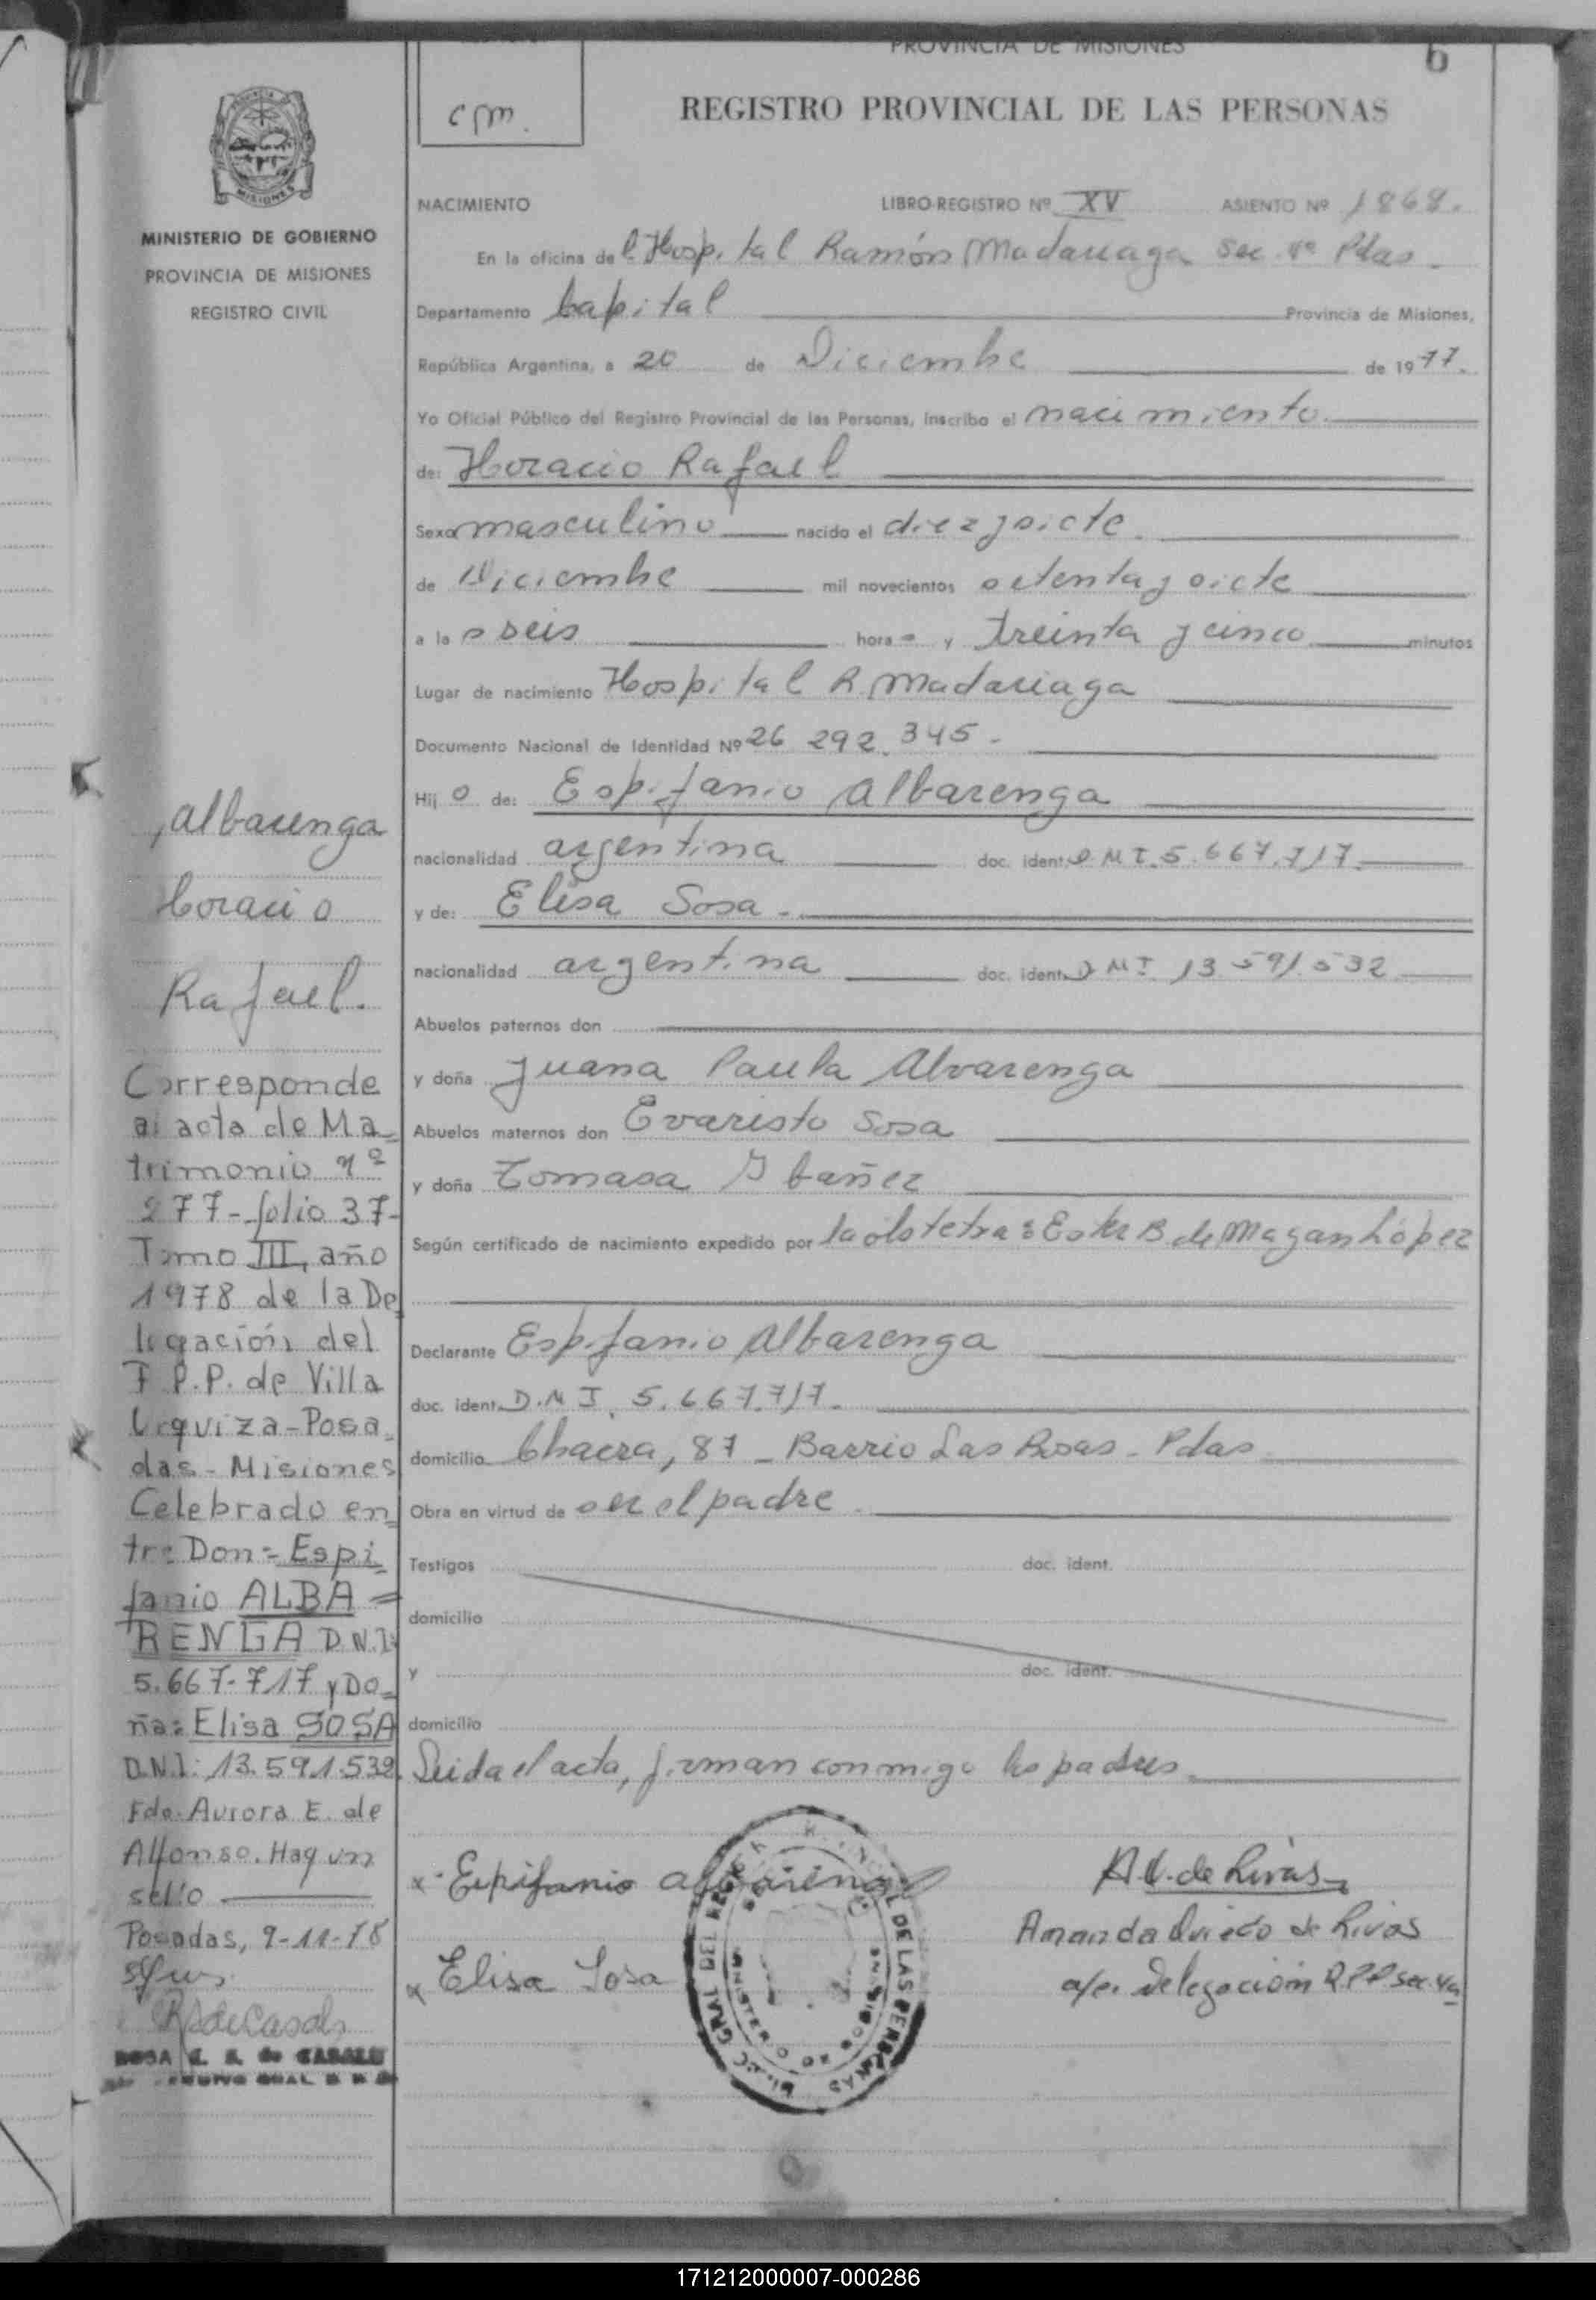 PROVINCIA DE MISIONES
6
cpm.
REGISTRO PROVINCIAL DE LAS PERSONAS
MISIONES
MINISTERIO DE GOBIERNO
PROVINCIA DE MISIONES
REGISTRO CIVIL
NACIMIENTO LIBRO-REGISTRO Nº XV ASIENTO Nº 1868.
En la oficina del Hospital Ramón Madariaga Sec. 4ª Pdas.
Departamento Capital Provincia de Misiones,
República Argentina, a 20 de Diciembre de 1977.
Yo Oficial Público del Registro Provincial de las Personas, inscribo el nacimiento
de: Horacio Rafael
Sexo masculino nacido el diez y siete
de Diciembre mil novecientos setenta y siete
a las seis horas y treinta y cinco minutos
Lugar de nacimiento Hospital R. Madariaga
Documento Nacional de Identidad Nº 26 292.345.
Hijo de: Espifanio Albarenga
nacionalidad argentina doc. ident. D.N.I. 5.667.717.
y de: Elisa Sosa.
nacionalidad argentina doc. ident. D.N.I. 13 591.532
Abuelos paternos don
y doña Juana Paula Alvarenga
Abuelos maternos don Evaristo Sosa
y doña Tomasa Ibañez
Según certificado de nacimiento expedido por la obstetra: Ester B. de Magan López
Declarante Espifanio Albarenga
doc. ident. D.N.I. 5.667.717.
domicilio Chacra, 87 - Barrio Las Rosas - Pdas
Obra en virtud de ser el padre.
Testigos doc. ident.
domicilio
y doc. ident.
domicilio
Leida el acta, firman conmigo los padres.
x. Epifanio albarenga
x Elisa Sosa
A.O. de Rivas
Amanda Oviedo de Rivas
a/c. Delegación R.P.P. Sec. 4a
DE LAS PERSONAS
Albarenga
Horacio
Rafael.
Corresponde
al acta de Ma-
trimonio nº
277-folio 37-
Tomo III, año
1978 de la De
legación del
R.P.P. de Villa
Urquiza-Posa-
das-Misiones
Celebrado en-
tre Don: Espi-
fanio ALBA=
RENGA D.N.I:
5.667-717 y Do-
ña: Elisa SOSA
D.N.I: 13.591.532.
Fdo. Aurora E. de
Alfonso. Hay un
sello
Posadas, 9-11-78
RdeCasals
ROSA de CASALS
171212000007-000286